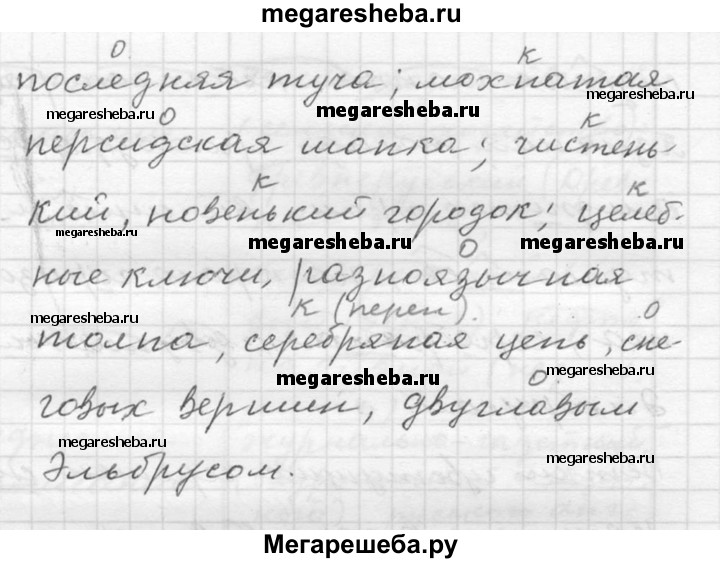 megaresheba.ru
о
к
последняя туча; мохнатая
megaresheba.ru
megaresheba.ru
megaresheba.ru
о
к
персидская шапка; чистень-
megaresheba.ru
к
к
кий, новенький городок; целеб-
megaresheba.ru
megaresheba.ru
megaresheba.ru
о
ные ключи, разноязычная
megaresheba.ru
к (перен).
о
толпа, серебряная цепь, сне-
megaresheba.ru
megaresheba.ru
о.
говых вершин, двуглавым
megaresheba.ru
megaresheba.ru
Эльбрусом.
megaresheba.ru
Мегарешеба.ру